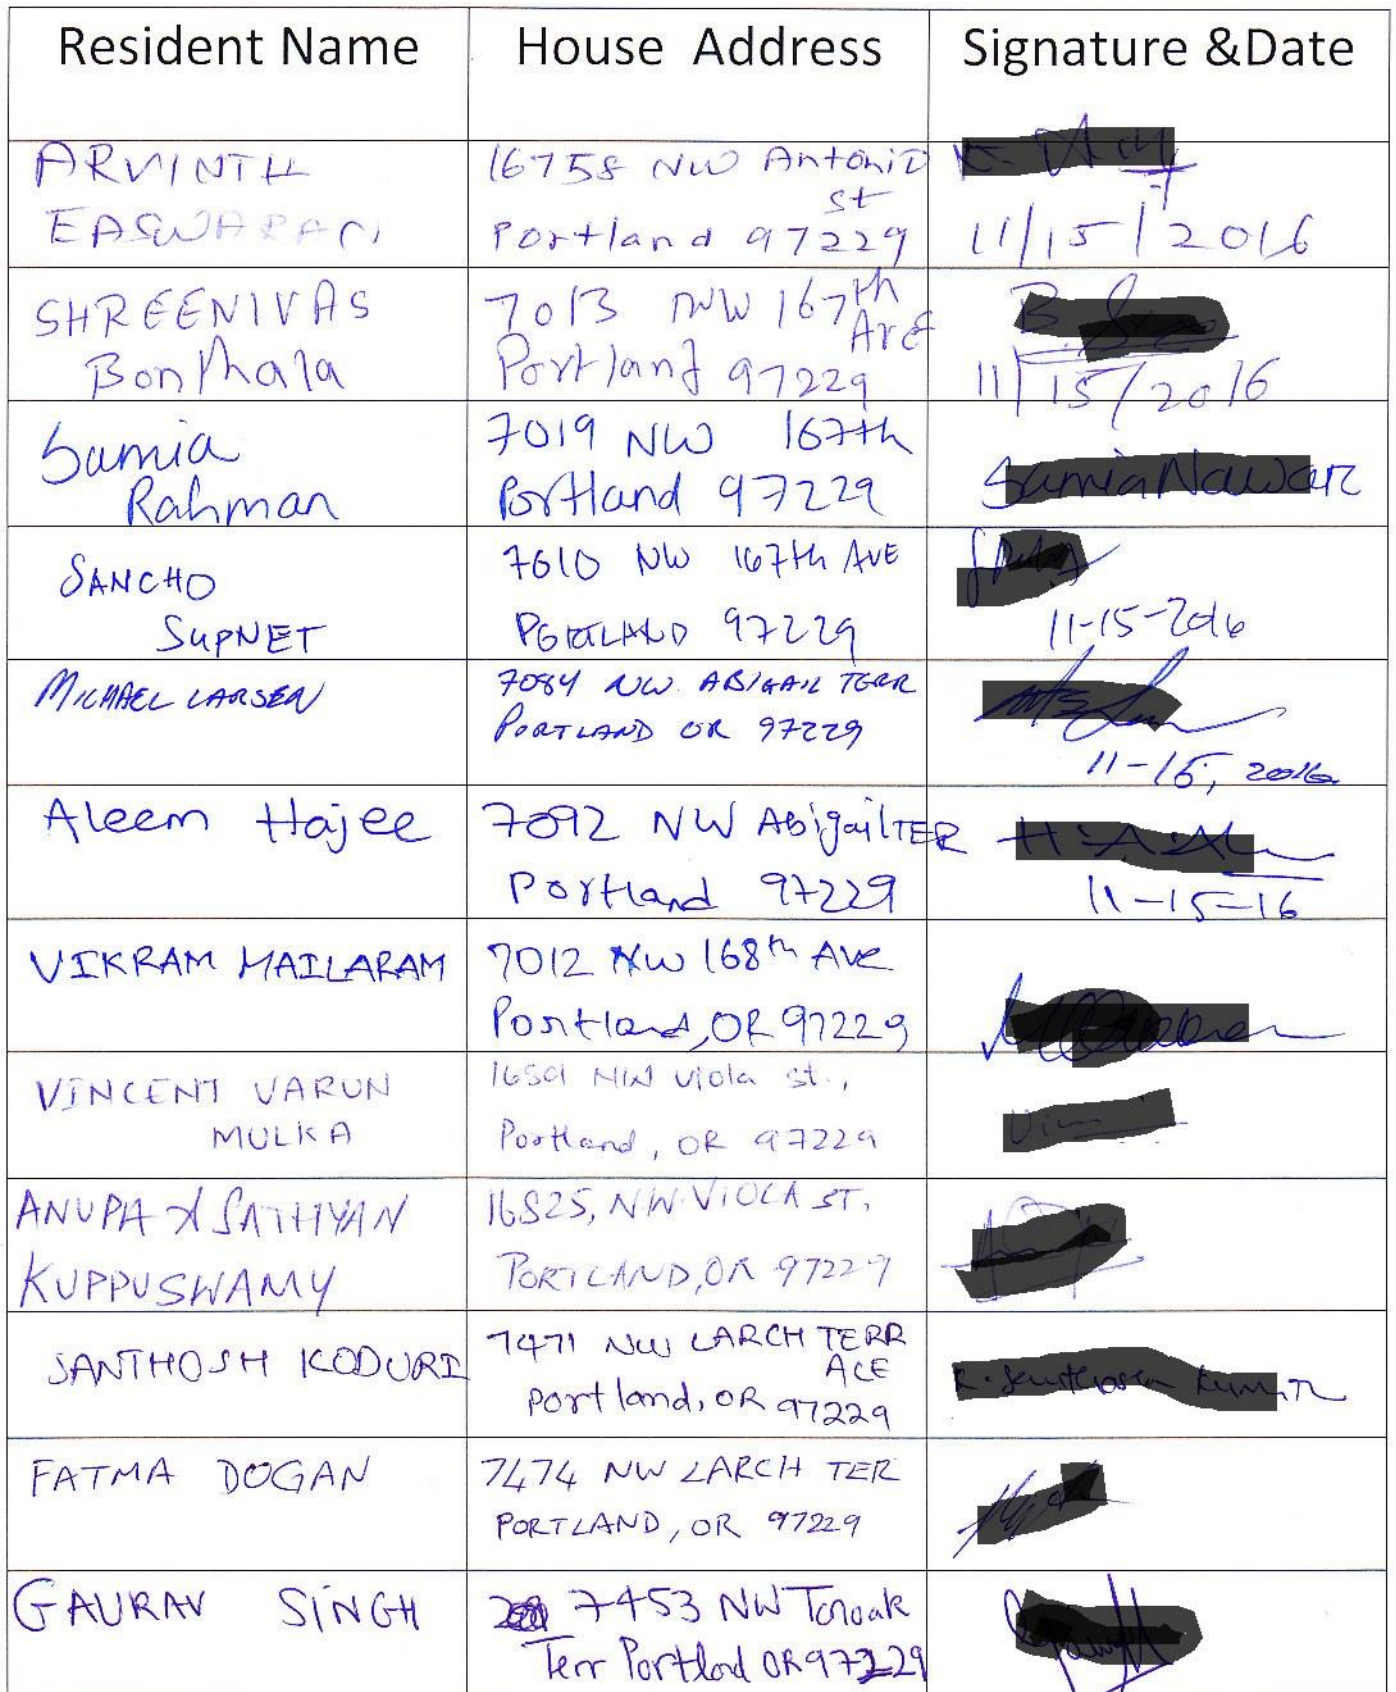 Resident Name House Address Signature &Date
ARVINTH
EASWARAN
16758 NW Antonio
st
Portland 97229
11/15/2016
SHREENIVAS
Bonthala
7013 NW 167th
Ave
Portland 97229
11/15/2016
Samia
Rahman
7019 NW 167th
Portland 97229
SANCHO
SUPNET
7010 NW 167th AVE
PORTLAND 97229
11-15-2016
MICHAEL LARSEN
7084 NW ABIGAIL TERR
PORTLAND OR 97229
11-15, 2016
Aleem Hajee
7092 NW AbigailTER
Portland 97229
11-15-16
VIKRAM MAILARAM
7012 NW 168th Ave
Portland, OR 97229
VINCENT VARUN
MULKA
NW viola st.,
Portland, OR 97229
SATHYAN
KUPPUSWAMY
16825, N.W. VIOLA ST.
PORTLAND, OR 97229
SANTHOSH KODURI
7471 NW LARCH TERR
ACE
Portland, OR 97229
FATMA DOGAN
7474 NW LARCH TER
PORTLAND, OR 97229
GAURAV SINGH
7453 NW
Terr Portland OR 97229